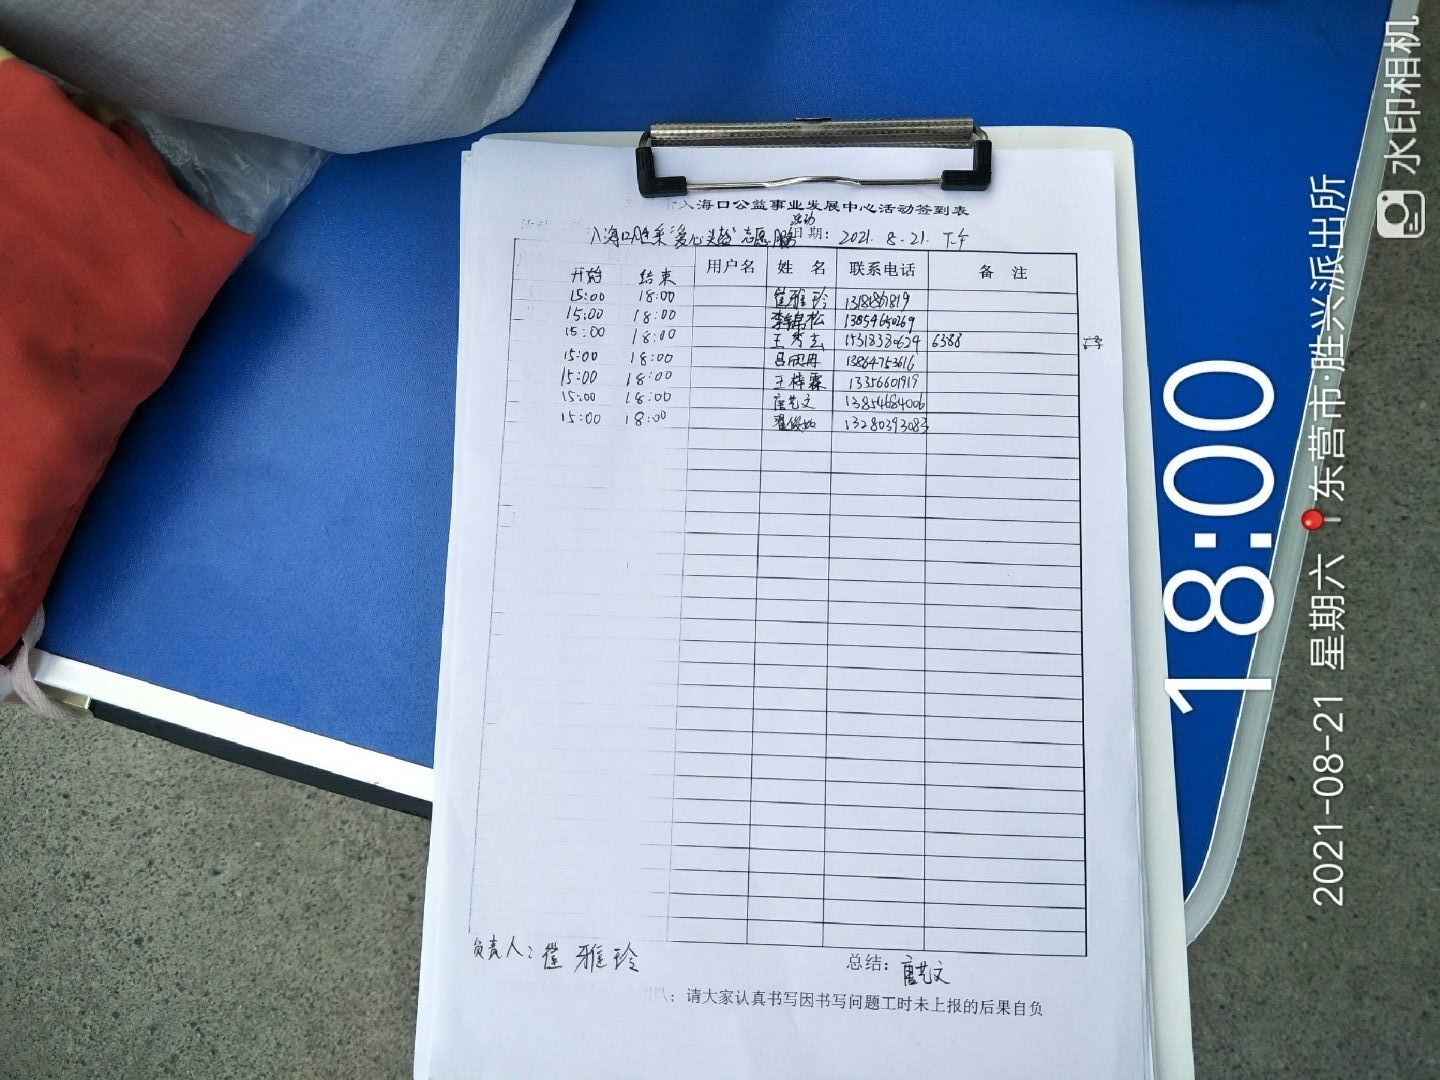 入海口公益事业发展中心活动签到表
活动
入海口胜采"爱心义诊"志愿服务 日期: 2021.8.21.下午
开始 结束 用户名 姓名 联系电话 备注
15:00 18:00 崔雅玲
15:00 18:00 李锦松 13854650269
15:00 18:00 王秀玄 6388
15:00 18:00 吕欣冉 13864753616
15:00 18:00 王梓霖
15:00 18:00 唐艺文 13854684006
15:00 18:00 13280393083
负责人: 崔雅玲
总结: 唐艺文
请大家认真书写因书写问题工时未上报的后果自负
18:00
2021-08-21 星期六 东营市·胜兴派出所
水印相机